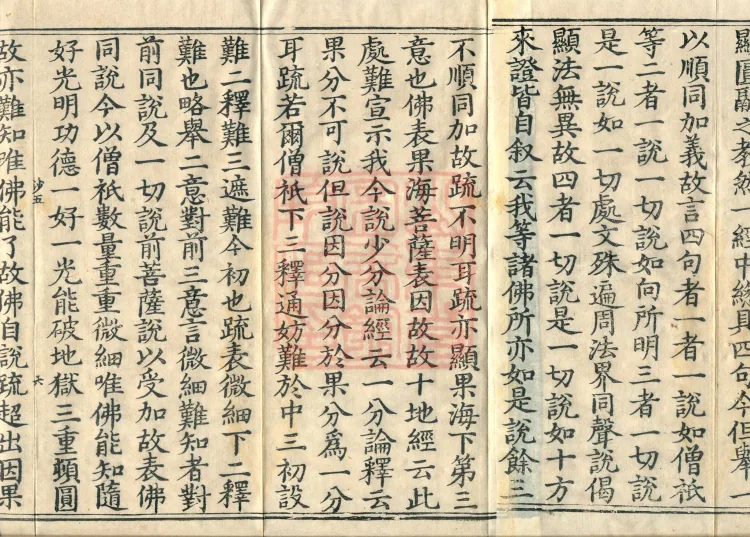 顯圓融之孝然一經中總具四句今但舉一
以順同加義故言四句者一者一說如僧祇
等二者一說一切說如向所明三者一切說
是一說如一切處文殊遍周法界同聲說偈
顯法無異故四者一切說是一切說如十方
來證皆自叙云我等諸佛所亦如是說餘三
不順同加故䟽不明耳䟽亦顯果海下第三
意也佛表果海菩薩表因故故十地經云此
處難宣示我今說少分論經云一分論釋云
果分不可說但說因分因分於果分爲一分
耳䟽若爾僧祇下三釋通妨難於中三初設
難二釋難三遮難今初也䟽表微細下二釋
難也略舉二意對前三意言微細難知者對
前同說及一切說前菩薩說以受加故表佛
同說今以僧祇數量重重微細唯佛能知隨
好光明功德一好一光能破地獄三重頓圓
故亦難知唯佛能了故佛自說䟽超出因果
抄五
六